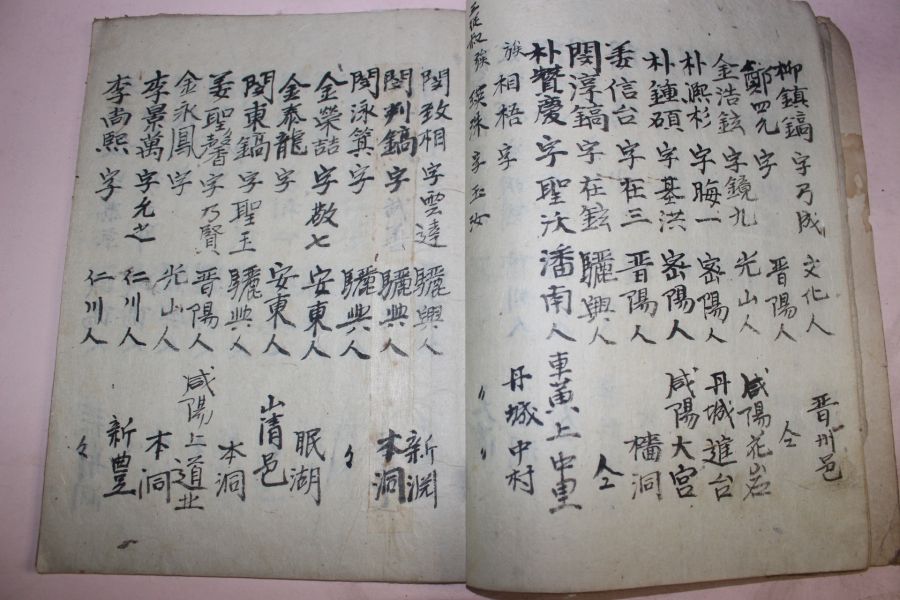 柳鎮鎬 字乃成 文化人 晋州邑
鄭四九 字 晋陽人 仝
金浩鉉 字鏡九 光山人 咸陽花岩
朴熙杉 字晦一 密陽人 丹城進台
朴鍾碩 字基洪 密陽人 咸陽大宮
姜信台 字在三 晋陽人 樯洞
閔淳鎬 字在鉉 驪興人 仝
朴賛慶 字聖汏 潘南人 車黃上中里
族相梧 字 丹城中村
三從叔 族 瑛珠 字玉汝 〃 〃
閔致相 字雲達 驪興人 新渊
閔判鎬 字 驪興人 本洞
閔泳箕 字 驪興人 〃
金榮喆 字敬七 安東人 眠湖
金泰龍 字 安東人 山淸邑
閔東鎬 字聖玉 驪興人 本洞
姜聖馨 字乃賢 晋陽人 咸陽上道北
金永鳳 字 光山人 本洞
李景萬 字允之 仁川人 新豊
李尚熙 字 仁川人 〃